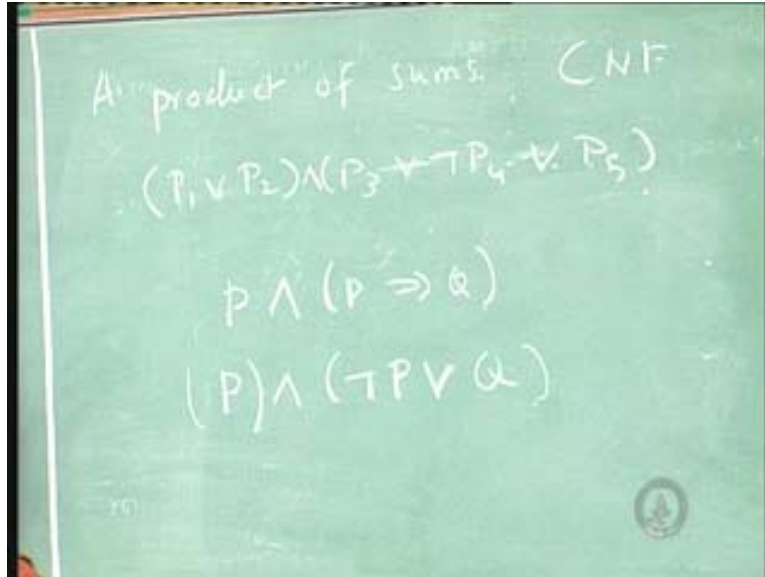 A product of sums. CNF
(P₁ ∨ P₂) ∧ (P₃ ∨ ¬P₄ ∨ P₅)
P ∧ (P ⇒ Q)
(P) ∧ (¬P ∨ Q)